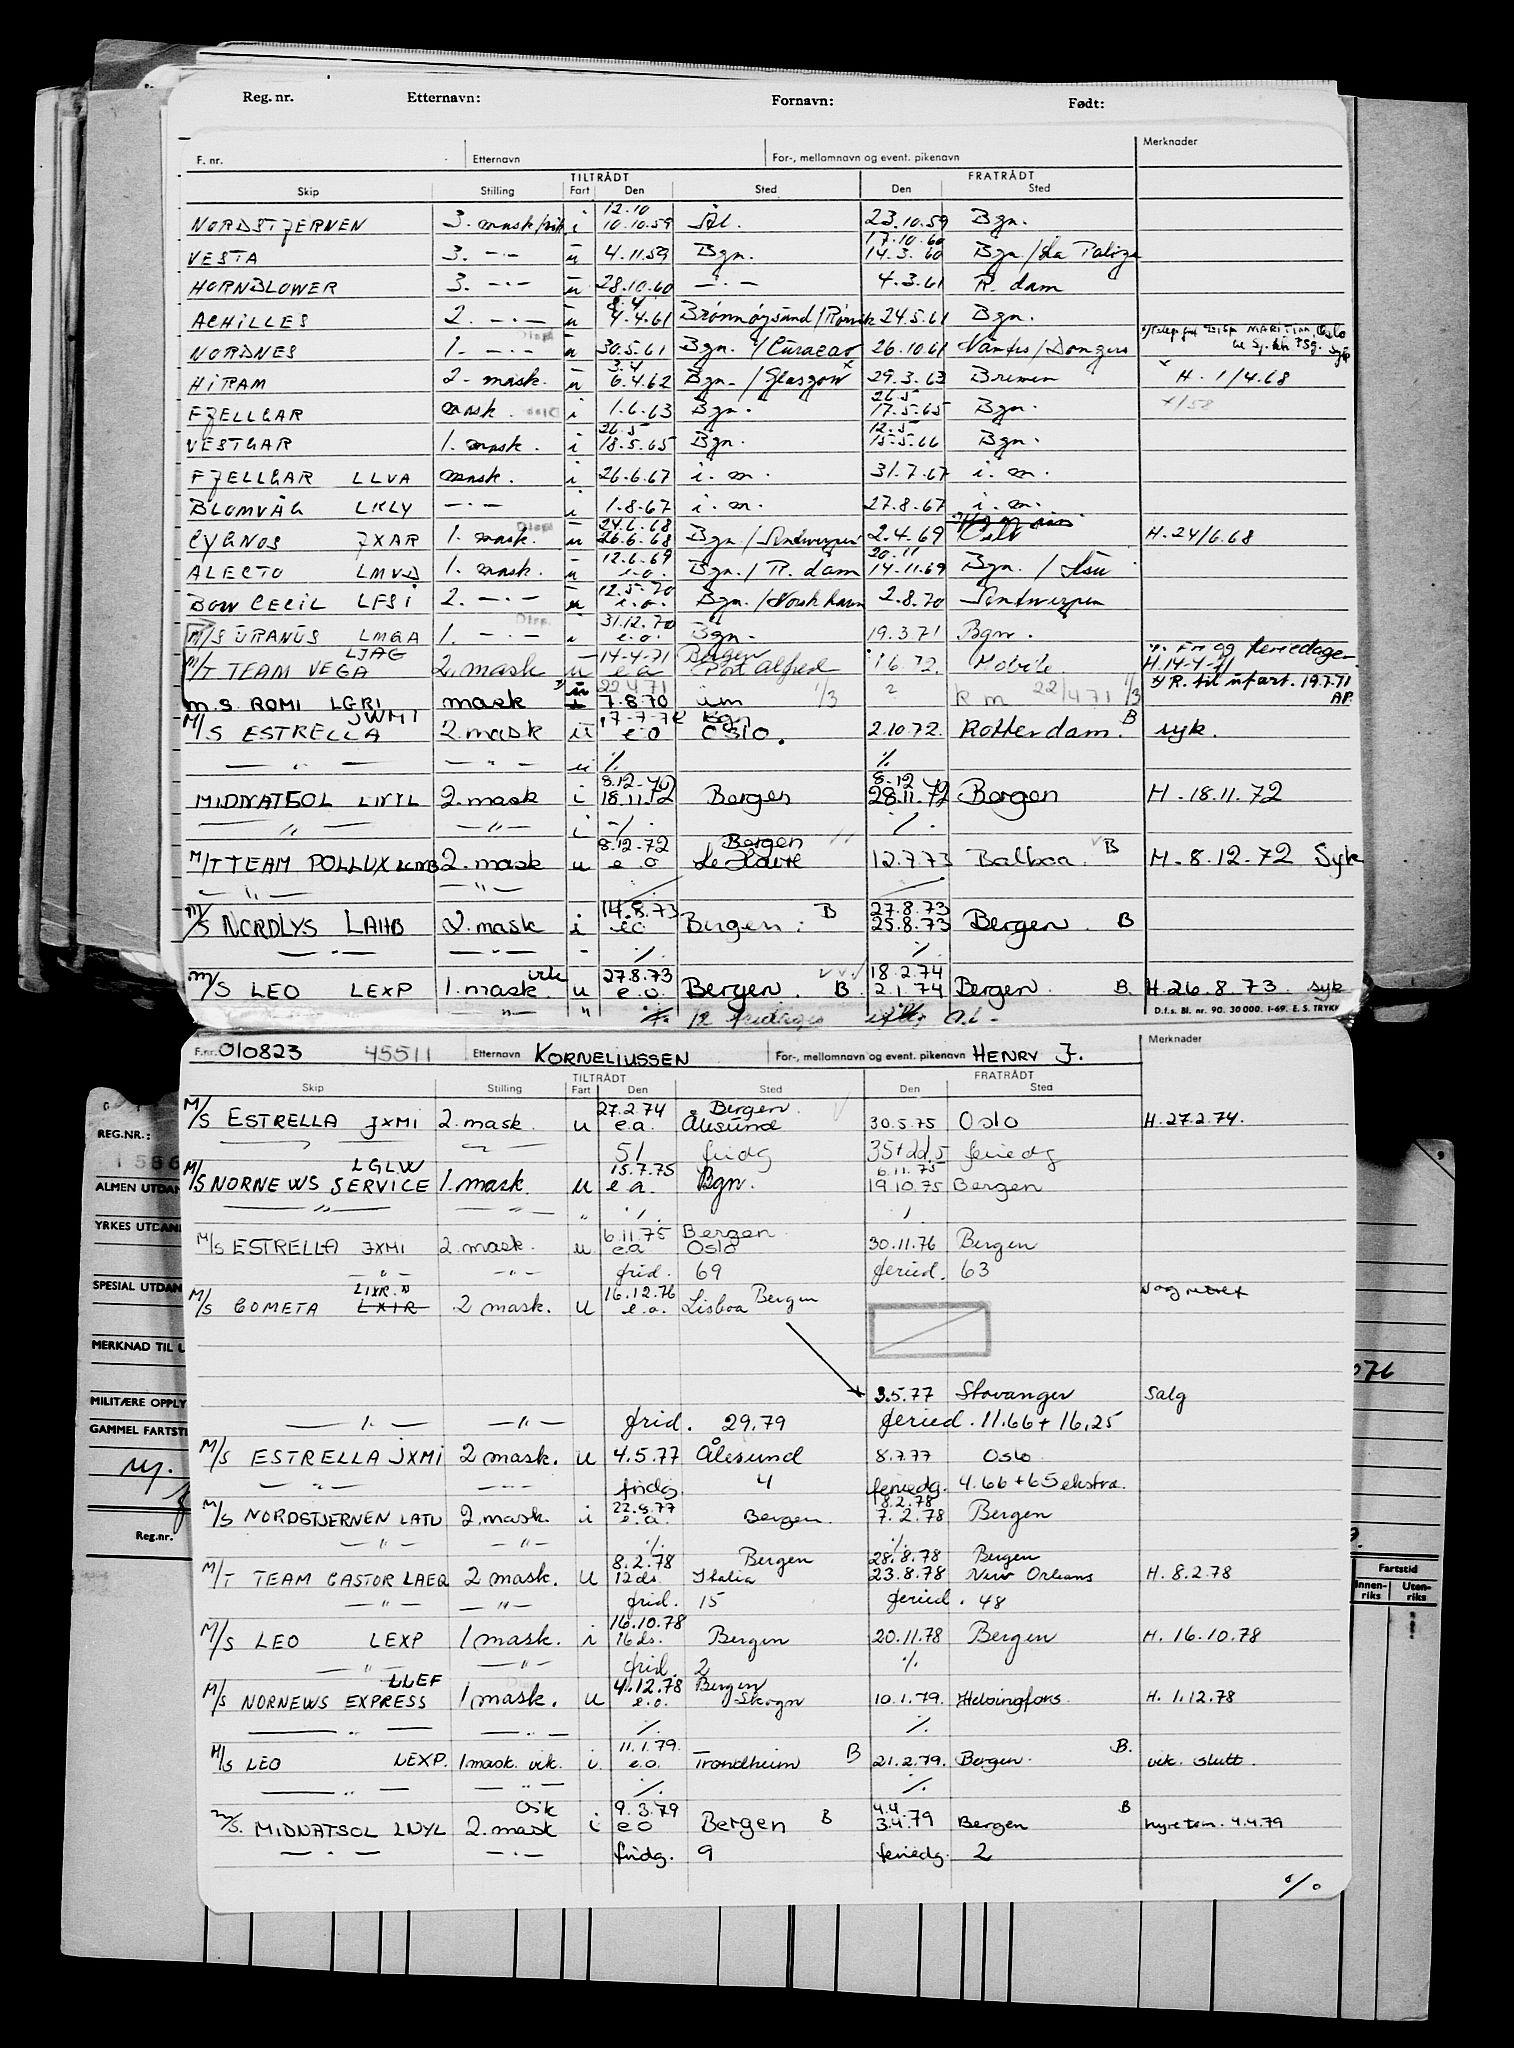 Reg. nr. Etternavn: Fornavn: Født:
F. nr. Etternavn For-, mellomnavn og event. pikenavn Merknader
TILTRÅDT FRATRÅDT
Skip Stilling Fart Den Sted Den Sted
12.10
NORDSTJERNEN 3. mask/vik i 10.10.59 Ål. 23.10.59 Bgn.
17.10.60
VESTA 3. -·- u 4.11.59 Bgn. 14.3.60 Bgn/
HORNBLOWER 3. -·- u 28.10.60 -·- 4.3.61 R.dam
8.4
ACHILLES 2. -·- u 4.4.61 Brønnøysund/Rørvik 24.5.61 Bgn.
NORDNES 1. -·- u 30.5.61 Bgn./Curacao 26.10.61 Nantes/Donges
3.4
HIRAM 2. mask. u 6.4.62 Bgn./Glasgow x 29.3.63 Bremen x H. 1/4.68
26.5
FJELLGAR mask. i 1.6.63 Bgn. 17.5.65 Bgn.
26.5 12.5
VESTGAR 1. mask. i 18.5.65 Bgn. 15.5.66 Bgn.
FJELLGAR LLVA mask. i 26.6.67 i.m. 31.7.67 i.m.
BLOMVÅG LKLY -·- i 1.8.67 i.m. 27.8.67 i.m.
24.6.68
CYGNUS JXAR 1. mask. u 26.6.68 Bgn/Antwerpen 2.4.69 Oslo H. 24/6.68
12.6.69 20.11
ALECTO LMVD 1. mask. u e.o. Bgn./R.dam 14.11.69 Bgn./
12.5.70
BOW CECIL LFSI 2. -·- u e.o. Bgn./Norsk havn 2.8.70 Antwerpen
31.12.70
M/S URANUS LMGA 1. -·- i e.o. Bgn. 19.3.71 Bgn.
LJAG 14-4-71 Bergen
M/T TEAM VEGA 2. mask u e a Port Alfred 1.6.72. Mobile H. 14-4-71
22 4 71
m.s. ROMI LGRI mask 7.8.70 i m 1/3 ? k m 22/4 71 1/3 R. til utart. 19.7.71
AP.
JWMI 17-7-72 Bgn.
M/S ESTRELLA 2. mask u e o OSLO. 2.10.72. Rotterdam. B syk.
— " — — " — u % %
8.12.72 8.12
MIDNATSOL LNYL 2. mask i 18.11.72 Bergen 28.11.72 Bergen H. 18.11.72
— " — — " — i % %
8.12.72 Bergen
M/T TEAM POLLUX 2. mask u e o Le Havre 12.7.73 Balboa B H. 8.12.72 Syk
— " — — " —
14.8.73 27.8.73
M/S NORDLYS LAHB 2. mask i e o Bergen B 25.8.73 Bergen B
— " — — " — % %
vik 27.8.73 18.2.74
m/s LEO LEXP 1. mask. u e.o. Bergen. B 2.1.74 Bergen. B. H. 26.8.73 syk
— " — " 12 fridager
D.f.s. Bl. nr. 90. 30 000. 1-69. E. S. TRYKK
F. nr. 010823 45511 Etternavn KORNELIUSSEN For-, mellomnavn og event. pikenavn HENRY J. Merknader
TILTRÅDT FRATRÅDT
Skip Stilling Fart Den Sted Den Sted
27.2.74 Bergen.
M/S ESTRELLA JXMI 2. mask. u e.a. Ålesund 30.5.75 Oslo H. 27.2.74.
51 fridg 35+22.5 feriedg
LGLW 15.7.75 6.11.75
M/S NORNEWS SERVICE 1. mask. u e a. Bgn. 19.10.75 Bergen
— " — — " — " %
6.11.75 Bergen
M/S ESTRELLA JXMI 2. mask. u e a Oslo 30.11.76 Bergen
— " — — " — frid. 69 feried. 63
LIXR. 16.12.76
M/S COMETA LXIR 2 mask. u e.a. Lisboa Bergen
3.5.77 Stavanger Salg
— " — — " — frid. 29.79 feried. 11.66 + 16.25
M/S ESTRELLA JXMI 2 mask. u 4.5.77 Ålesund 8.7.77 Oslo
— " — — " — fridg 4 feriedg. 4.66 + 65 ekstra.
22.9.77 18.2.78
M/S NORDSTJERNEN LATU 2. mask. i e.a. Bergen. 7.2.78 Bergen
— " — — " — % %
8.2.78 Bergen 28.8.78 Bergen
M/T TEAM CASTOR LAEQ 2 mask. u 12 ds. Italia 23.8.78 New Orleans H. 8.2.78
— " — — " — frid. 15 feried. 48
16.10.78
M/S LEO LEXP 1 mask. i 16 ds. Bergen 20.11.78 Bergen H. 16.10.78
— " — — " — frid. 2 %
LLEF 4.12.78 Bergen
M/S NORNEWS EXPRESS 1 mask. u e.o. Skogn 10.1.79. Helsingfors. H. 1.12.78
— " — — " — % %
11.1.79.
M/S LEO LEXP. 1 mask. vik. i. e.o. Trondheim B 21.2.79. Bergen. B. vik. slutt.
— " — — " — % %
Vik 9.3.79 4.4.
m/s. MIDNATSOL LNYL 2. mask i e o Bergen B 3.4.79 Bergen B hyreterm. 4.4.79
— " — — " — fridg. 9 feriedg. 2
%
REG.NR.:
ALMEN UTDAN
YRKES UTDAN
SPESIAL UTDAN
MERKNAD TIL U
MILITÆRE OPPLY
GAMMEL FARTSTI
Reg.nr.
076
Fartstid
Innen-riks Uten-riks